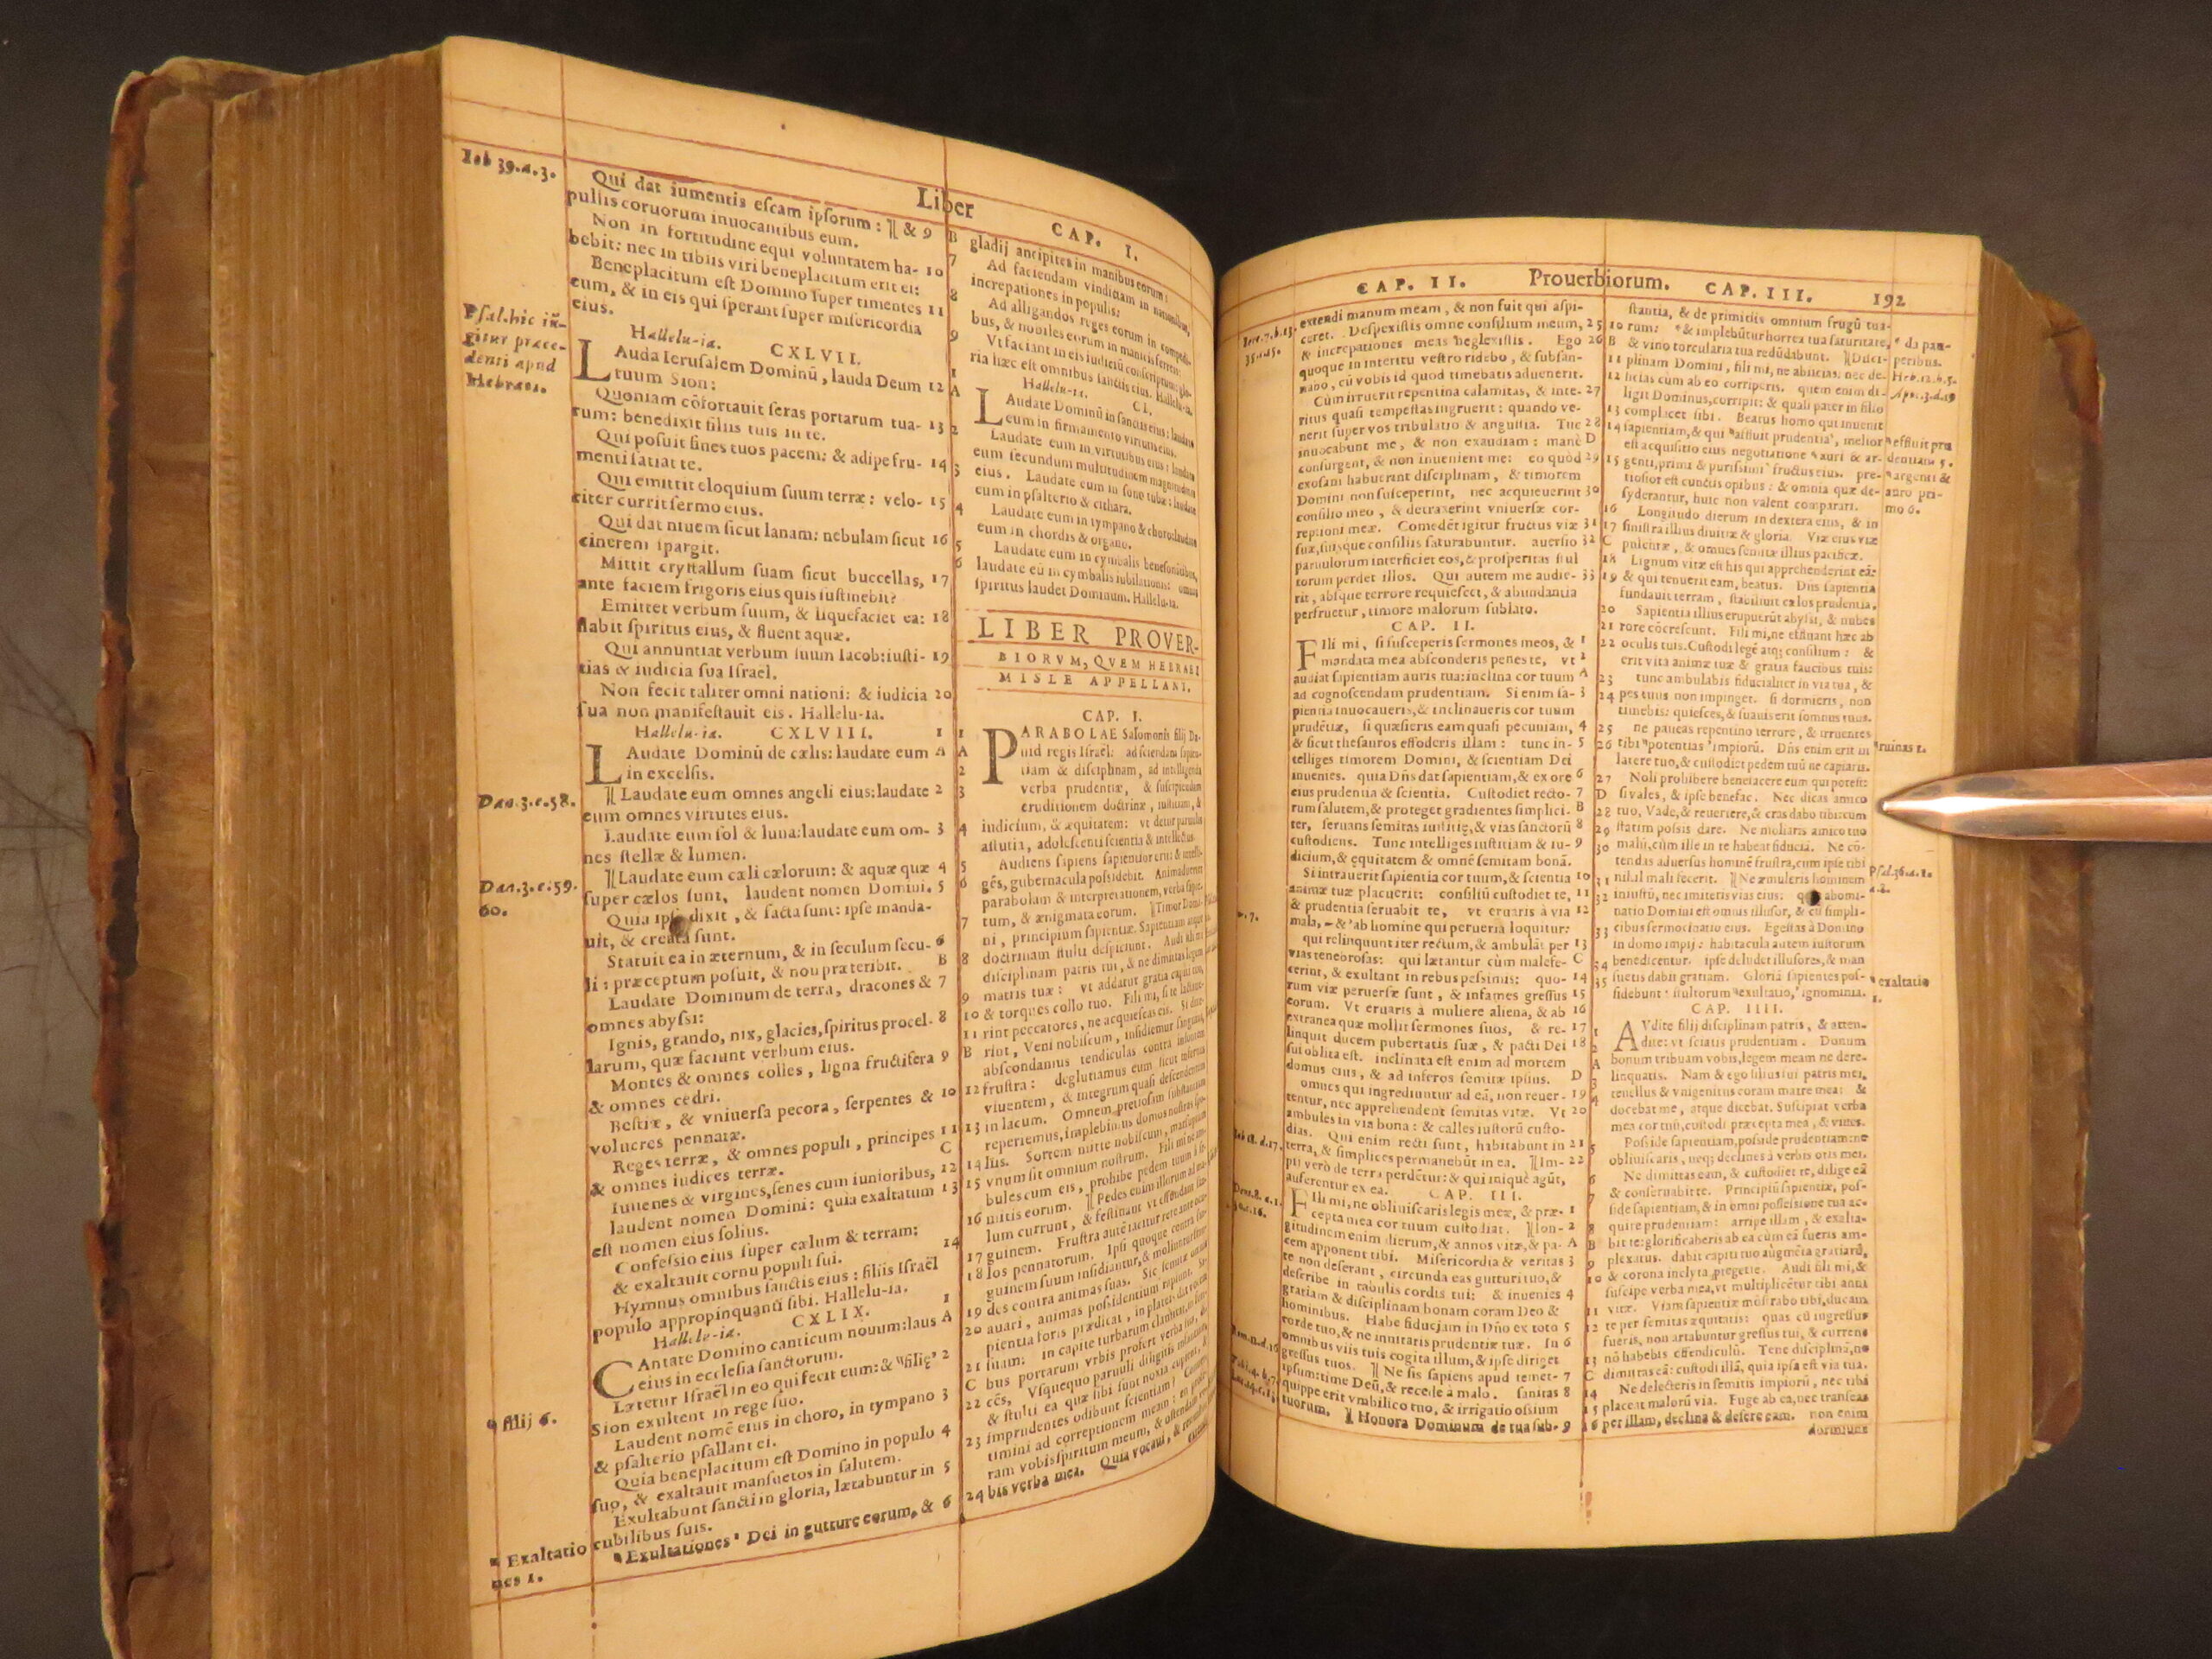 Liber
CAP. I.
Iob 39.a.3.
Qui dat iumentis eſcam ipſorum : ][ & 9
pullis coruorum inuocantibus eum.
Non in fortitudine equi voluntatem ha- 10
bebit: nec in tibiis viri beneplacitum erit ei:
Beneplacitum eſt Domino ſuper timentes 11
eum, & in eis qui ſperant ſuper miſericordia
eius.
Pſal.hic iũ-
gitur præce-
denti apud
Hebræos.
Hallelu-ia. CXLVII.
LAuda Ieruſalem Dominũ, lauda Deum 12
tuum Sion:
Quoniam cõfortauit ſeras portarum tua- 13
rum: benedixit filiis tuis in te.
Qui poſuit fines tuos pacem: & adipe fru- 14
menti ſatiat te.
Qui emittit eloquium ſuum terræ: velo- 15
citer currit ſermo eius.
Qui dat niuem ſicut lanam: nebulam ſicut 16
cinerem ſpargit.
Mittit cryſtallum ſuam ſicut buccellas, 17
ante faciem frigoris eius quis ſuſtinebit?
Emittet verbum ſuum, & liquefaciet ea: 18
flabit ſpiritus eius, & fluent aquæ.
Qui annuntiat verbum ſuum Iacob: iuſti- 19
tias & iudicia ſua Iſrael.
Non fecit taliter omni nationi: & iudicia 20
ſua non manifeſtauit eis. Hallelu-ia.
Hallelu-ia. CXLVIII. 1
LAudate Dominũ de cælis: laudate eum A
in excelſis.
][ Laudate eum omnes angeli eius: laudate 2
Dan.3.e.58.
eum omnes virtutes eius.
Laudate eum ſol & luna: laudate eum om- 3
nes ſtellæ & lumen.
][ Laudate eum cæli cælorum: & aquæ quæ 4
Dan.3.e.59.
60.
ſuper cælos ſunt, laudent nomen Domini. 5
Quia ipſe dixit, & facta ſunt: ipſe manda-
uit, & creata ſunt.
Statuit ea in æternum, & in ſeculum ſecu- 6
li : præceptum poſuit, & non præteribit. B
Laudate Dominum de terra, dracones & 7
omnes abyſsi:
Ignis, grando, nix, glacies, ſpiritus procel- 8
larum, quæ faciunt verbum eius.
Montes & omnes colles, ligna fructifera 9
& omnes cedri.
Beſtiæ, & vniuerſa pecora, ſerpentes & 10
volucres pennatæ.
Reges terræ, & omnes populi, principes 11
& omnes iudices terræ. C
Iuuenes & virgines, ſenes cum iunioribus, 12
laudent nomen Domini: quia exaltatum 13
eſt nomen eius ſolius.
Confeſsio eius ſuper cælum & terram: 14
& exaltauit cornu populi ſui.
Hymnus omnibus ſanctis eius : filiis Iſraël
populo appropinquanti ſibi. Hallelu-ia.
Hallelu-ia. CXLIX. 1
CAntate Domino canticum nouum: laus A
eius in eccleſia ſanctorum.
Lætetur Iſraël in eo qui fecit eum: & "filię' 2
" filij 6.
Sion exultent in rege ſuo.
Laudent nomẽ eius in choro, in tympano 3
& pſalterio pſallant ei.
Quia beneplacitum eſt Domino in populo 4
ſuo, & exaltauit manſuetos in ſalutem.
Exultabunt ſancti in gloria, lætabuntur in 5
cubilibus ſuis.
" Exaltatio
nes 1.
"Exultationes' Dei in gutture eorum, & 6
B gladij ancipites in manibus eorum:
7 Ad faciendam vindictam in nationibus,
increpationes in populis:
8 Ad alligandos reges eorum in compedi-
bus, & nobiles eorum in manicis ferreis:
9 Vt faciant in eis iudiciũ conſcriptum: glo-
ria hæc eſt omnibus ſanctis eius. Hallelu-ia.
1 Hallelu-ia. CL.
A LAudate Dominũ in ſanctis eius: laudate
eum in firmamento virtutis eius.
2 Laudate eum in virtutibus eius: laudate
eum ſecundum multitudinem magnitudinis
3 eius. Laudate eum in ſono tubæ: laudate
eum in pſalterio & cithara.
4 Laudate eum in tympano & choro: laudate
eum in chordis & organo.
5 Laudate eum in cymbalis beneſonãtibus,
6 laudate eũ in cymbalis iubilationis: omnis
ſpiritus laudet Dominum. Hallelu-ia.
LIBER PROVER-
BIORVM, QVEM HEBRAEI
MISLE APPELLANT.
CAP. I.
1 PARABOLAE Salomonis filij Da-
A uid regis Iſraël: ad ſciendam ſapien-
2 tiam & diſciplinam, ad intelligenda
3 verba prudentiæ, & ſuſcipiendam
eruditionem doctrinæ, iuſtitiam, &
4 iudicium, & æquitatem: vt detur paruulis
aſtutia, adoleſcenti ſcientia & intellectus.
5 Audiens ſapiens ſapientior erit: & intelli-
6 gẽs, gubernacula poſsidebit. Animaduertet
parabolam & interpretationem, verba ſapiẽ-
7 tum, & ænigmata eorum. ][Timor Domi-
ni, principium ſapientiæ. Sapientiam atque
8 doctrinam ſtulti deſpiciunt. Audi fili mi
diſciplinam patris tui, & ne dimittas legem
9 matris tuæ: vt addatur gratia capiti tuo,
10 & torques collo tuo. Fili mi, ſi te lactaue-
11 rint peccatores, ne acquieſcas eis. Si dixe-
B rint, Veni nobiſcum, inſidiemur ſanguini,
abſcondamus tendiculas contra inſontem
12 fruſtra: deglutiamus eum ſicut infernus
viuentem, & integrum quaſi deſcendentem
13 in lacum. Omnem pretioſam ſubſtantiam
reperiemus, implebimus domos noſtras ſpo-
14 liis. Sortem mitte nobiſcum, marſupium
15 vnum ſit omnium noſtrum. Fili mi ne am-
bules cum eis, prohibe pedem tuum à ſe-
16 mitis eorum. ][Pedes enim illorum ad ma-
lum currunt, & feſtinant vt effundant ſan-
17 guinem. Fruſtra autẽ iacitur rete ante ocu-
18 los pennatorum. Ipſi quoque contra ſan-
guinem ſuum inſidiantur, & moliuntur frau-
19 des contra animas ſuas. Sic ſemitæ omnis
20 auari, animas poſsidentium rapiunt. Sa-
pientia foris prædicat, in plateis dat vocem
21 ſuam: in capite turbarum clamitat, in fori-
C bus portarum vrbis profert verba ſua, di-
22 cẽs, Vſquequo paruuli diligitis infantiam,
& ſtulti ea quæ ſibi ſunt noxia cupient, &
23 imprudentes odibunt ſcientiam? Conuer-
timini ad correptionem meam: en profe-
ram vobis ſpiritum meum, & oſtendam vo-
24 bis verba mea. Quia vocaui, & renuiſtis:
CAP. II. Prouerbiorum. CAP. III. 192
extendi manum meam, & non fuit qui aſpi-
ceret. Deſpexiſtis omne conſilium meum, 25
& increpationes meas neglexiſtis. Ego 26
quoque in interitu veſtro ridebo, & ſubſan-
nabo, cũ vobis id quod timebatis aduenerit.
Cùm irruerit repentina calamitas, & inte- 27
ritus quaſi tempeſtas ingruerit: quando ve-
nerit ſuper vos tribulatio & anguſtia. Tuc 28
inuocabunt me, & non exaudiam: manè D
conſurgent, & non inuenient me: eo quòd 29
exoſam habuerint diſciplinam, & timorem
Domini non ſuſceperint, nec acquieuerint 30
conſilio meo, & detraxerint vniuerſæ cor-
reptioni meæ. Comedẽt igitur fructus viæ 31
ſuæ, ſuisque conſiliis ſaturabuntur. auerſio 32
paruulorum interficiet eos, & proſperitas ſtul
torum perdet illos. Qui autem me audie- 33
rit, abſque terrore requieſcet, & abundantia
perfruetur, timore malorum ſublato.
CAP. II.
FIli mi, ſi ſuſceperis ſermones meos, & 1
mandata mea abſconderis penes te, vt 2
audiat ſapientiam auris tua: inclina cor tuum A
ad cognoſcendam prudentiam. Si enim ſa- 3
pientiã inuocaueris, & inclinaueris cor tuum
prudẽtiæ, ſi quæſieris eam quaſi pecuniam, 4
& ſicut theſauros effoderis illam: tunc in- 5
telliges timorem Domini, & ſcientiam Dei
inuenies. quia Dñs dat ſapientiam, & ex ore 6
eius prudentia & ſcientia. Cuſtodiet recto- 7
rum ſalutem, & proteget gradientes ſimplici- B
ter, ſeruans ſemitas iuſtitię, & vias ſanctorũ 8
cuſtodiens. Tunc intelliges iuſtitiam & iu- 9
dicium, & ęquitatem & omnẽ ſemitam bonã.
Si intrauerit ſapientia cor tuum, & ſcientia 10
animæ tuæ placuerit: conſiliũ cuſtodiet te, 11
& prudentia ſeruabit te, vt eruaris à via 12
mala, & 'ab homine qui peruerſa loquitur:
qui relinquunt iter rectum, & ambulãt per 13
vias tenebroſas: qui lætantur cùm malefe- C
cerint, & exultant in rebus peſsimis: quo- 14
rum viæ peruerſæ ſunt, & infames greſſus 15
eorum. Vt eruaris à muliere aliena, & ab 16
extranea quæ mollit ſermones ſuos, & re- 17
linquit ducem pubertatis ſuæ, & pacti Dei 18
ſui oblita eſt. inclinata eſt enim ad mortem
domus eius, & ad inferos ſemitæ ipſius. D
omnes qui ingrediuntur ad eã, non reuer- 19
tentur, nec apprehendent ſemitas vitæ. Vt 20
ambules in via bona: & calles iuſtorũ cuſto-
dias. Qui enim recti ſunt, habitabunt in 21
terra, & ſimplices permanebũt in ea. ][Im- 22
pij verò de terra perdẽtur: & qui iniquè agũt,
auferentur ex ea. CAP. III.
FIli mi, ne obliuiſcaris legis meæ, & præ- 1
cepta mea cor tuum cuſtodiat. ][lon- 2
gitudinem enim dierum, & annos vitæ, & pa- A
cem apponent tibi. Miſericordia & veritas 3
te non deſerant, circunda eas gutturi tuo, &
deſcribe in tabulis cordis tui: & inuenies 4
gratiam & diſciplinam bonam coram Deo &
hominibus. Habe fiduciam in Dño ex toto 5
corde tuo, & ne innitaris prudentiæ tuæ. In 6
omnibus viis tuis cogita illum, & ipſe diriget
greſſus tuos. ][ Ne ſis ſapiens apud temet- 7
ipſum: time Deũ, & recede à malo. ſanitas 8
quippe erit vmbilico tuo, & irrigatio oſsium
tuorum. ][ Honora Dominum de tua ſub- 9
ſtantia, & de primitiis omnium frugũ tua-
10 rum: "& implebũtur horrea tua ſaturitate,
B & vino torcularia tua redũdabunt. ][Diſci-
11 plinam Domini, fili mi, ne abiicias: nec de-
12 ficias cùm ab eo corriperis. quem enim di-
ligit Dominus, corripit: & quaſi pater in filio
13 complacet ſibi. Beatus homo qui inuenit
14 ſapientiam, & qui "affluit prudentia', melior
eſt acquiſitio eius negotiatione "auri & ar-
15 genti, primi & puriſsimi' fructus eius. pre-
tioſior eſt cunctis opibus: & omnia quæ de-
ſyderantur, huic non valent comparari.
16 Longitudo dierum in dextera eius, & in
17 ſiniſtra illius diuitiæ & gloria. Viæ eius viæ
C pulchræ, & omnes ſemitæ illius pacificæ.
18 Lignum vitæ eſt his qui apprehenderint eã:
19 & qui tenuerit eam, beatus. Dñs ſapientia
fundauit terram, ſtabiliuit cælos prudentia.
20 Sapientia illius eruperũt abyſsi, & nubes
21 rore cõcreſcunt. Fili mi, ne effluant hæc ab
22 oculis tuis. Cuſtodi legẽ atq; conſilium: &
erit vita animæ tuæ & gratia faucibus tuis:
23 tunc ambulabis fiducialiter in via tua, &
24 pes tuus non impinget. ſi dormieris, non
timebis: quieſces, & ſuauis erit ſomnus tuus.
25 ne paueas repentino terrore, & irruentes
26 tibi "potentias 'impiorũ. Dñs enim erit in
latere tuo, & cuſtodiet pedem tuũ ne capiaris.
27 Noli prohibere benefacere eum qui poteſt:
D ſi vales, & ipſe benefac. Nec dicas amico
28 tuo, Vade, & reuertere, & cras dabo tibi: cùm
29 ſtatim poſsis dare. Ne moliaris amico tuo
30 malũ, cùm ille in te habeat fiduciã. Ne cõ-
tendas aduerſus hominẽ fruſtra, cum ipſe tibi
31 nihil mali fecerit. ][Ne æmuleris hominem
32 iniuſtũ, nec imiteris vias eius: abomi-
natio Domini eſt omnis illuſor, & cũ ſimpli-
33 cibus ſermocinatio eius. Egeſtas à Domino
in domo impij: habitacula autem iuſtorum
34 benedicentur. ipſe deludet illuſores, & man
35 ſuetis dabit gratiam. Gloriã ſapientes poſ-
ſidebunt: ſtultorum "exaltatio,' ignominia.
CAP. IIII.
1 AVdite filij diſciplinam patris, & atten-
2 dite: vt ſciatis prudentiam. Donum
A bonum tribuam vobis, legem meam ne dere-
3 linquatis. Nam & ego filius fui patris mei,
4 tenellus & vnigenitus coram matre mea: &
docebat me, atque dicebat. Suſcipiat verba
mea cor tuũ, cuſtodi præcepta mea, & viues.
5 Poſside ſapientiam, poſside prudentiam: ne
obliuiſcaris, neq; declines à verbis oris mei.
6 Ne dimittas eam, & cuſtodiet te, dilige eã
7 & conſeruabit te. Principiũ ſapientiæ, poſ-
ſide ſapientiam, & in omni poſſeſsione tua ac-
8 quire prudentiam: arripe illam, & exalta-
B bit te: glorificaberis ab ea cùm eã fueris am-
9 plexatus. dabit capiti tuo augmẽta gratiarũ,
10 & corona inclyta proteget te. Audi fili mi, &
ſuſcipe verba mea, vt multiplicẽtur tibi anni
11 vitæ. Viam ſapientiæ mõſtrabo tibi, ducam
12 te per ſemitas æquitatis: quas cũ ingreſſus
fueris, non artabuntur greſſus tui, & currens
13 nõ habebis offendiculũ. Tene diſciplinã, ne
C dimittas eã: cuſtodi illã, quia ipſa eſt via tua.
14 Ne delecteris in ſemitis impiorũ, nec tibi
15 placeat malorũ via. Fuge ab ea, nec tranſeas
16 per illam, declina & deſere eam. non enim
dormiunt
" da pau-
peribus.
Heb.12.b.5.
Apoc.3.d.19
"effluit pru
dentiam 5.
"argenti &
auro pri-
mo 6.
"ruinas 1.
Pſal.36.a.1.
"exaltatio
1.